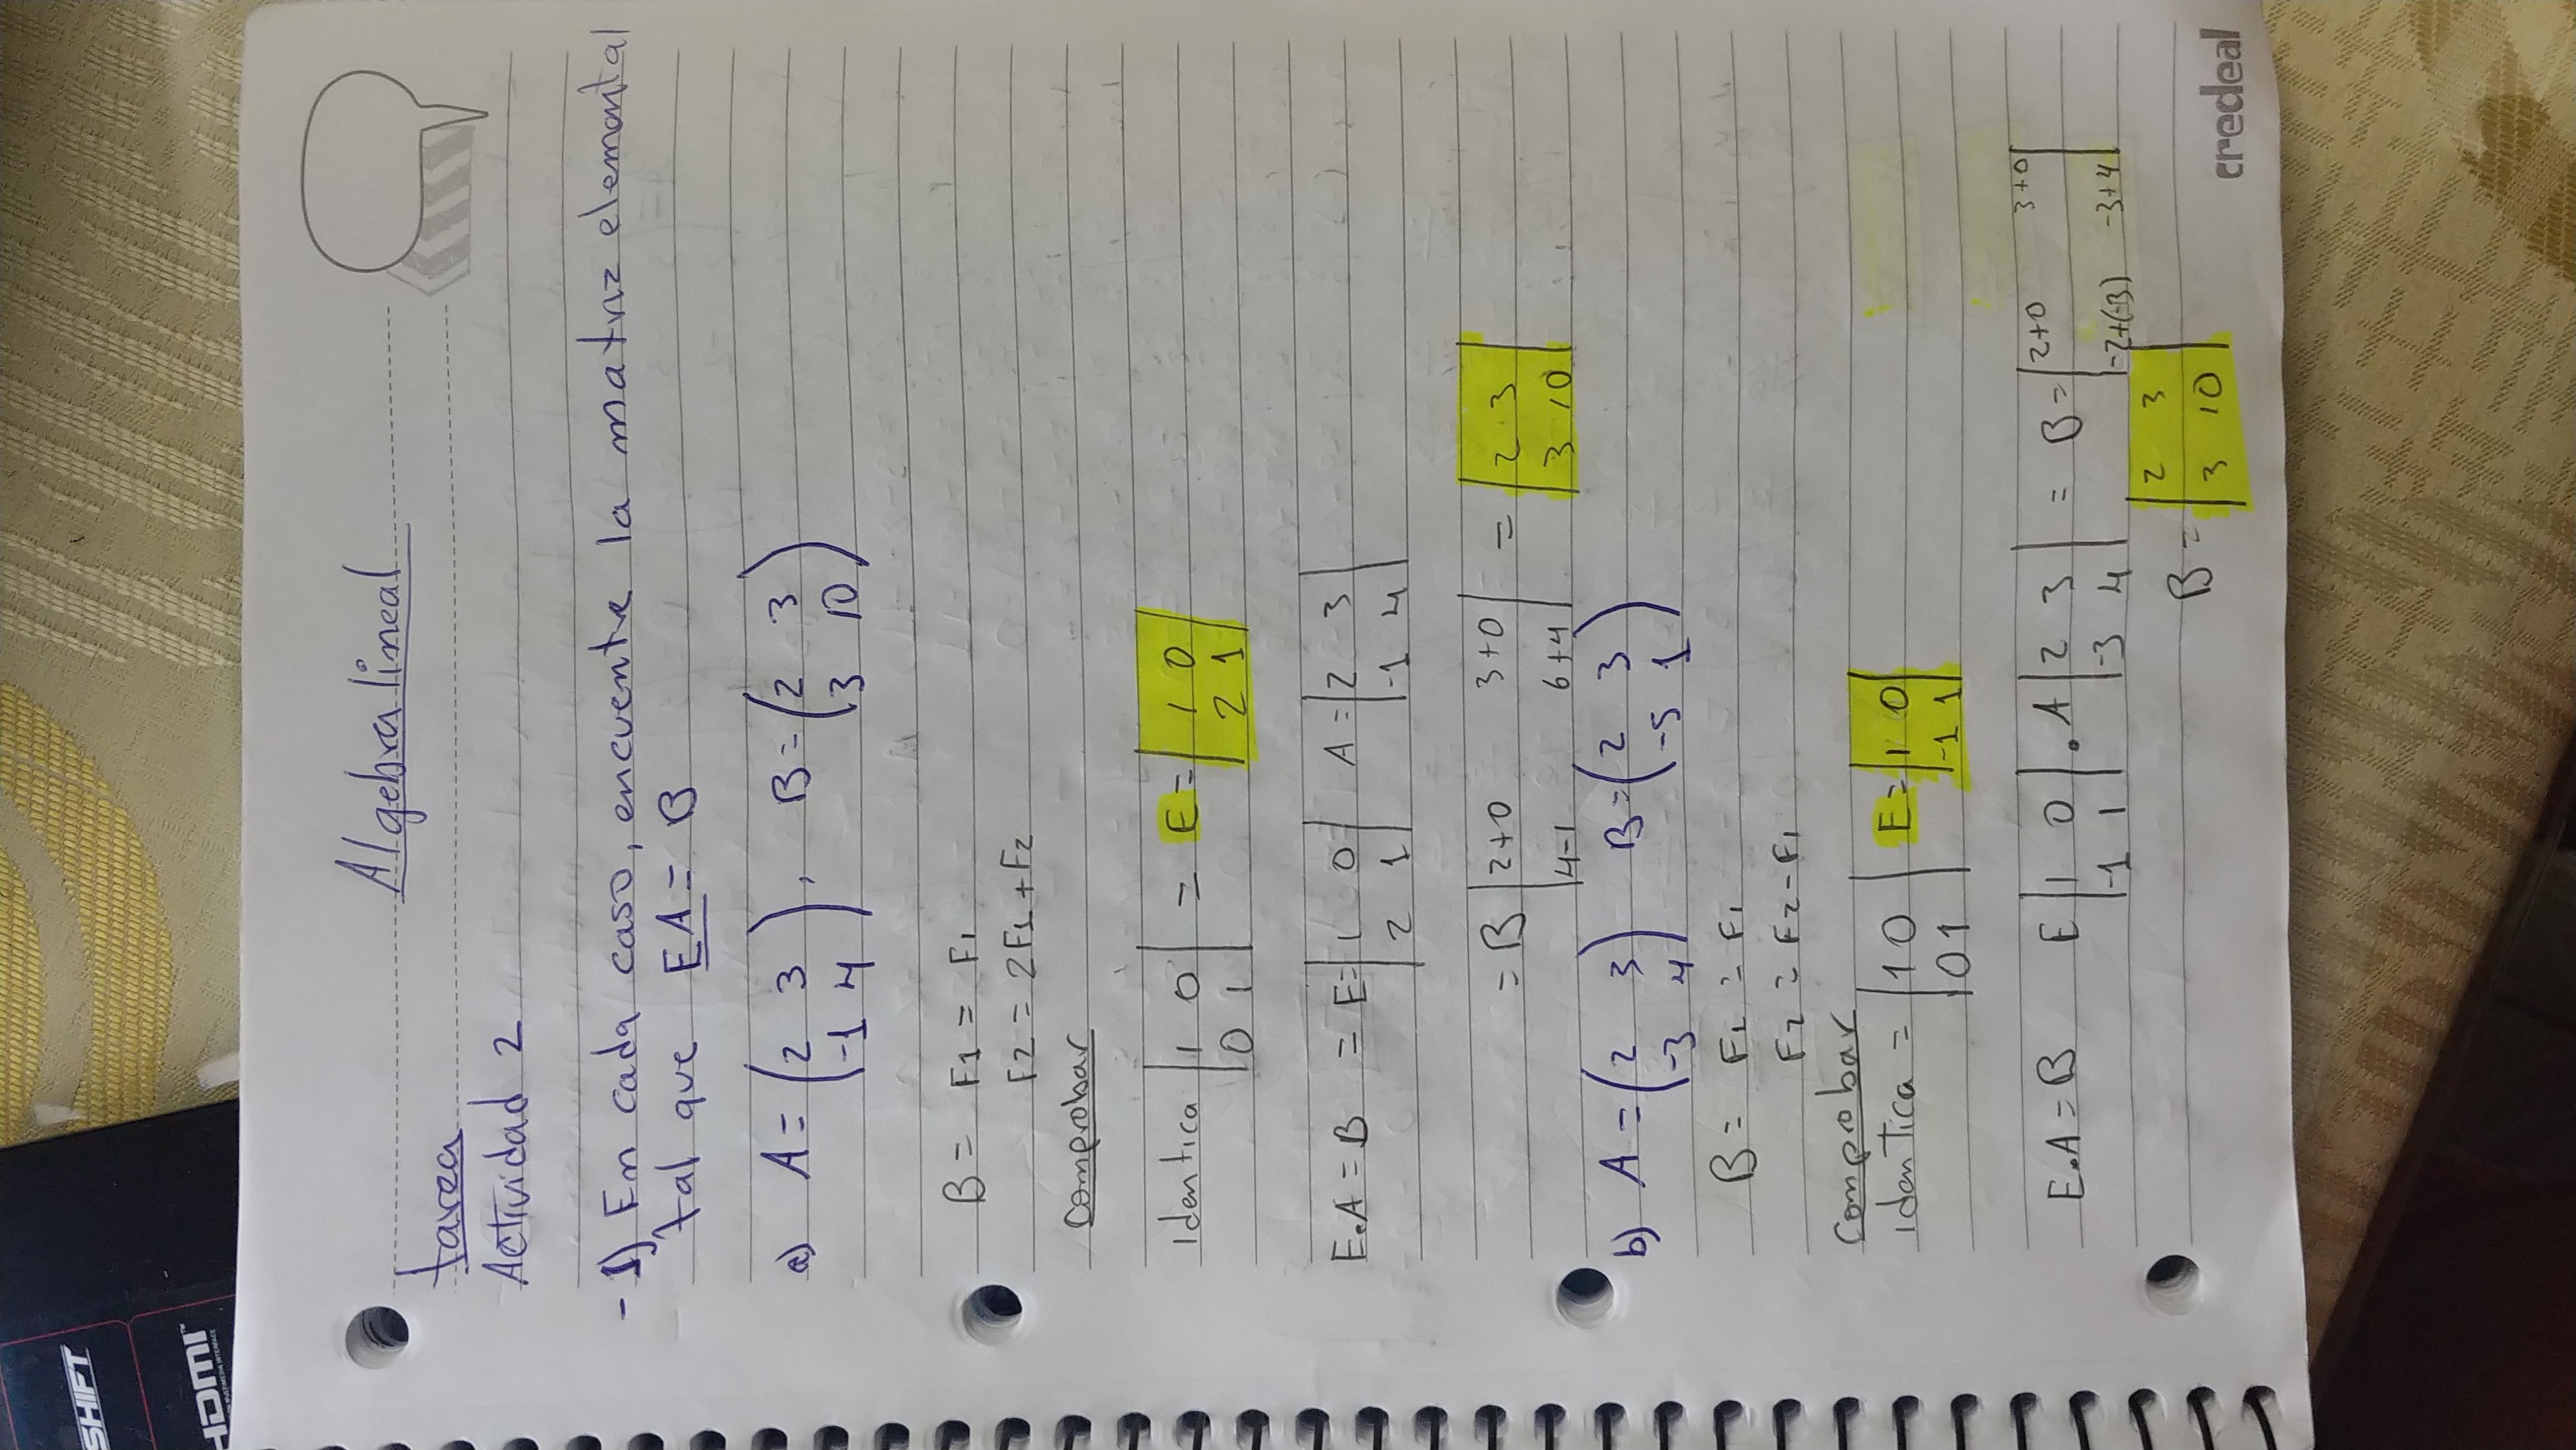 SHIFT
HDMI™
Algebra lineal
tarea
Actividad 2
- 1) En cada caso, encuentre la matriz elemental
tal que EA = B
a) A = (2 3 , B = (2 3
-1 4) 3 10)
B = F1 = F1
F2 = 2F1 + F2
Comprobar
Identica |1 0 = E = |1 0
0 1| 2 1|
E.A = B = E = |1 0 A = |2 3
2 1| -1 4|
= B |2+0 3+0 = |2 3
4-1 6+4| 3 10|
b) A = (2 3 B = (2 3
-3 4) -5 1)
B = F1 = F1
F2 = F2 - F1
Comprobar
identica = |1 0 E = |1 0
0 1| -1 1|
E.A = B E |1 0 . A |2 3 = B = |2+0 3+0
-1 1| -3 4| -2+(-3) -3+4|
B = |2 3
3 10|
credeal